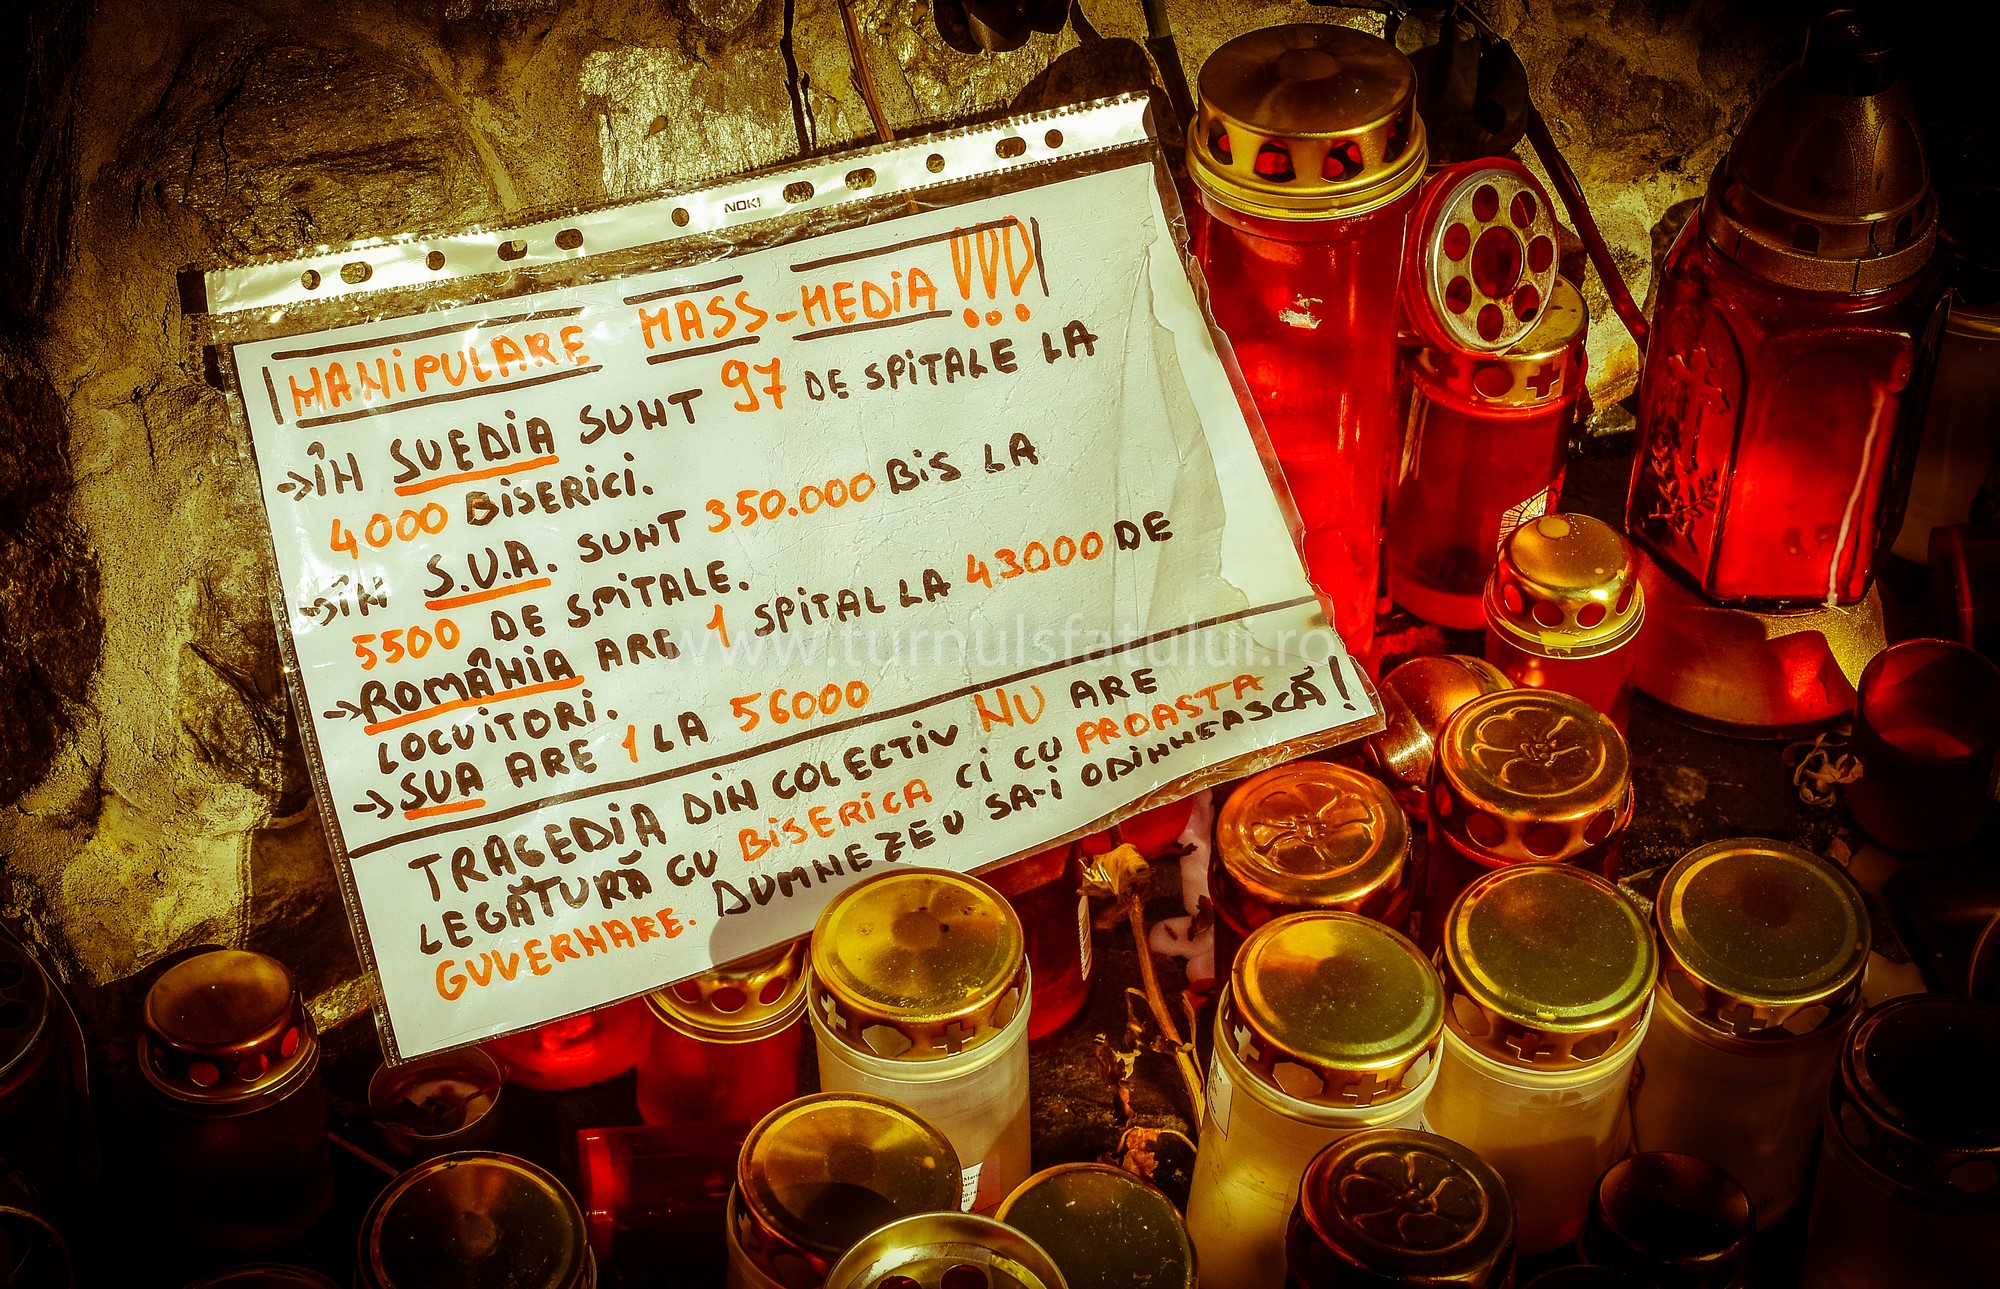 NOKI
MANIPULARE MASS-MEDIA!!!
→ÎN SUEDIA SUNT 97 DE SPITALE LA
4000 BISERICI.
→ÎN S.U.A. SUNT 350.000 BIS LA
5500 DE SPITALE.
→ROMÂNIA ARE 1 SPITAL LA 43000 DE
LOCUITORI.
→SUA ARE 1 LA 56000
TRAGEDIA DIN COLECTIV NU ARE
LEGĂTURĂ CU BISERICA CI CU PROASTA
GUVERNARE. DUMNEZEU SA-I ODIHNEASCĂ!
www.turnulsfatului.ro